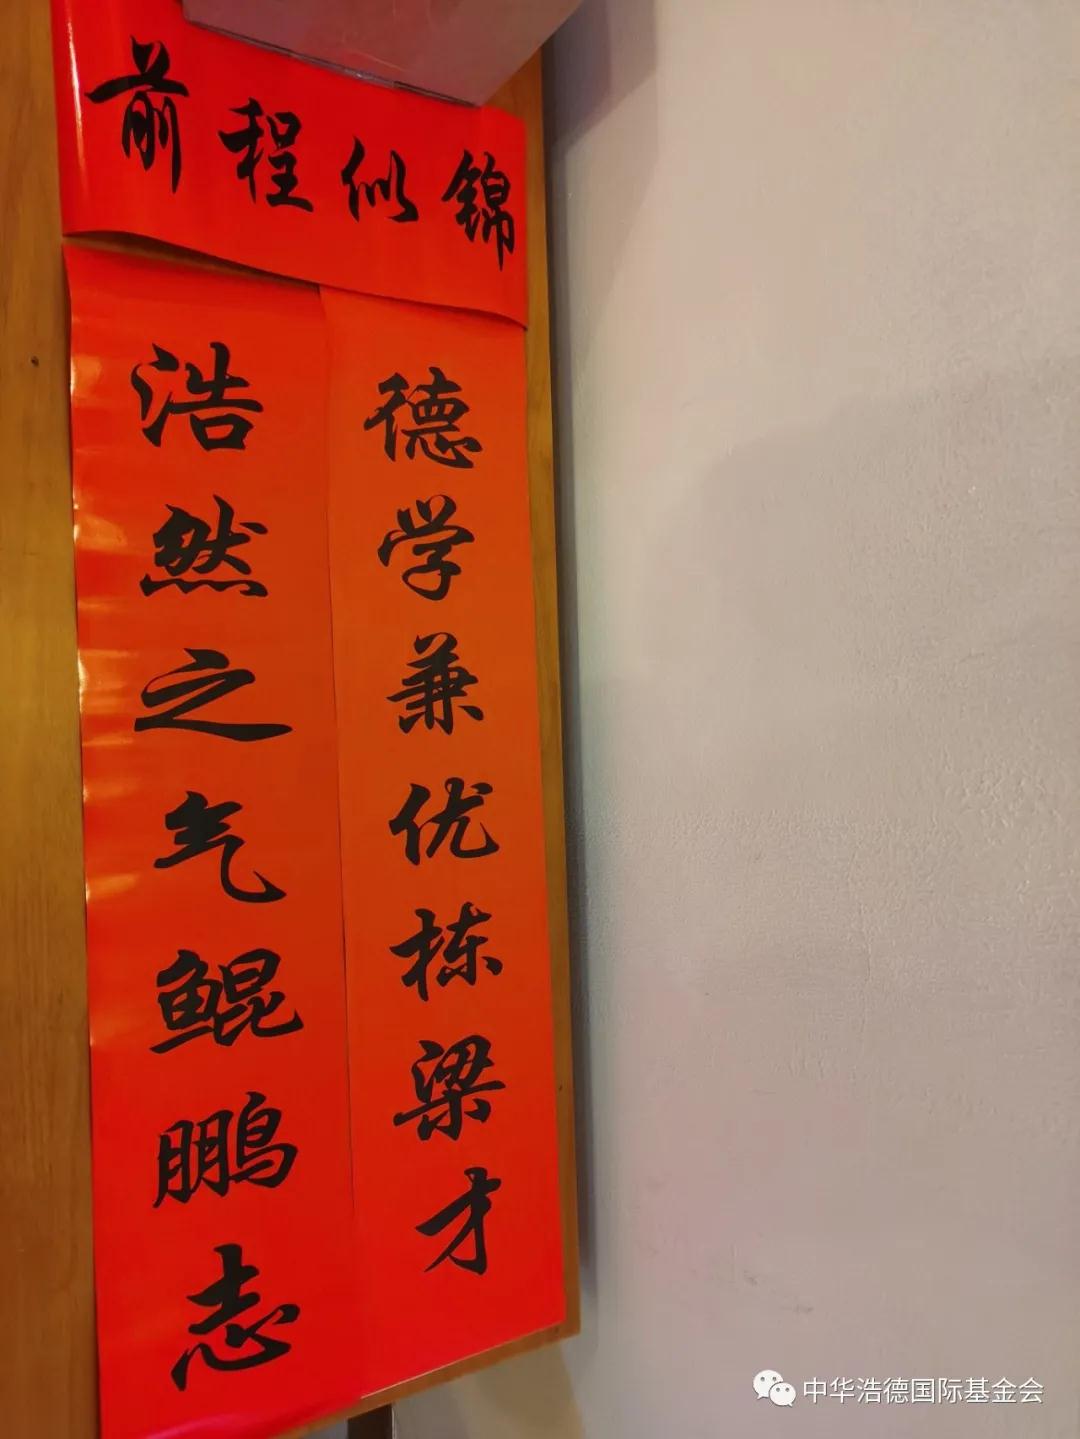 前程似锦
浩然之气鲲鹏志
德学兼优栋梁才
中华浩德国际基金会